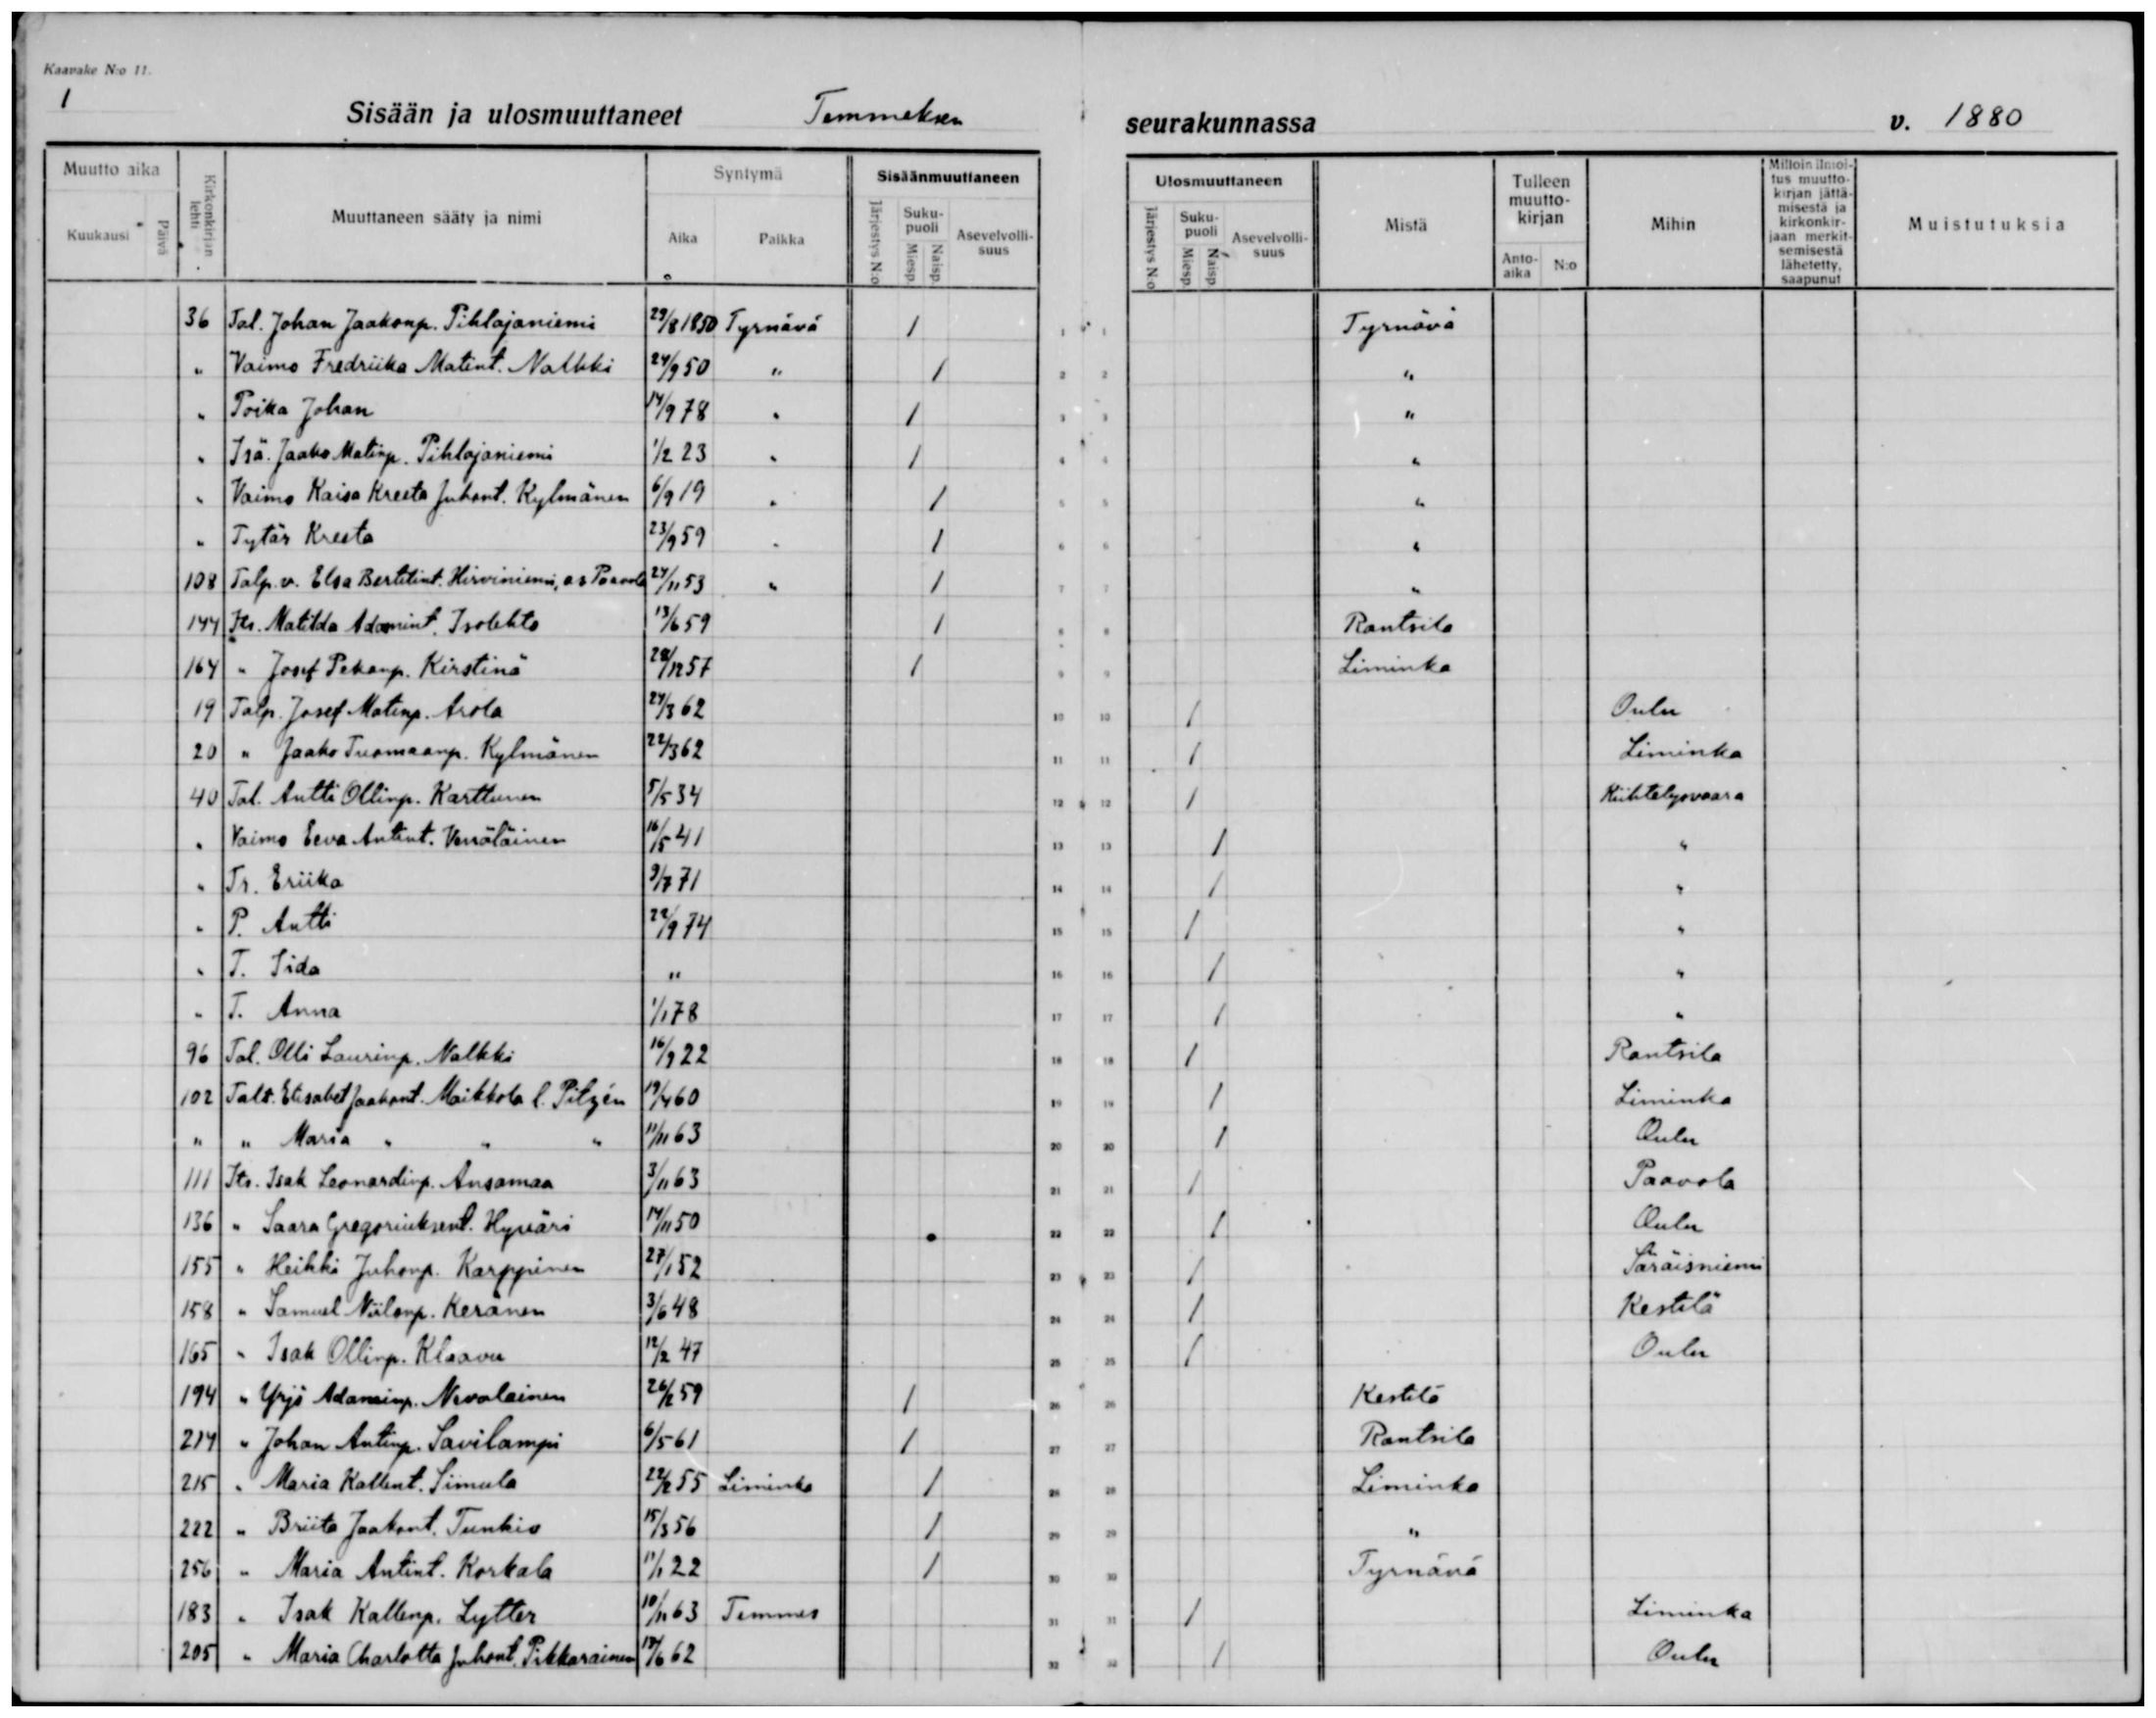 Kaavake N:o 11.
1
Sisään ja ulosmuuttaneet Temmeksen seurakunnassa v. 1880
Muutto aika Kirkonkirjan lehti Muuttaneen sääty ja nimi Syntymä Sisäänmuuttaneen Ulosmuuttaneen Mistä Tulleen muutto-kirjan Mihin Milloin ilmoi-tus muutto-kirjan jättä-misestä ja kirkonkir-jaan merkit-semisestä lähetetty, saapunut Muistutuksia
Kuukausi Päivä Aika Paikka Järjestys N:o Suku-puoli Miesp. Naisp. Asevelvolli-suus Järjestys N:o Suku-puoli Miesp. Naisp. Asevelvolli-suus Anto-aika N:o
36 Tal. Johan Jaakonp. Pihlajaniemi 29/8 1850 Tyrnävä / 1 1 Tyrnävä
" Vaimo Fredriika Matint. Nalkki 24/9 50 " / 2 2 "
" Poika Johan 14/9 78 " / 3 3 "
" Isä. Jaako Matinp. Pihlajaniemi 1/2 23 " / 4 4 "
" Vaimo Kaisa Kreeta Juhont. Kylmänen 6/9 19 " / 5 5 "
" Tytär Kreeta 23/9 59 " / 6 6 "
108 Talp. v. Elsa Bertelint. Hirviniemi, o.s. Paavola 24/11 53 " / 7 7 "
144 Its. Matilda Adamint. Isolehto 13/6 59 / 8 8 Rantsila
164 " Josef Pekanp. Kirstinä 28/12 57 / 9 9 Liminka
19 Talp. Josef Matinp. Arola 24/3 62 10 10 / Oulu
20 " Jaako Tuomaanp. Kylmänen 22/3 62 11 11 / Liminka
40 Tal. Antti Ollinp. Karttunen 5/5 34 12 12 / Kiihtelysvaara
" Vaimo Eeva Antint. Venäläinen 16/5 41 13 13 / "
" Tr. Eriika 9/7 71 14 14 / "
" P. Antti 22/9 74 15 15 / "
" T. Iida " 16 16 / "
" T. Anna 1/1 78 17 17 / "
96 Tal. Olli Laurinp. Nalkki 16/9 22 18 18 / Rantsila
102 Talt. Elisabet Jaakont. Maikkola l. Pitzén 19/4 60 19 19 / Liminka
" " Maria " " " 11/11 63 20 20 / Oulu
111 Its. Isak Leonardinp. Ansamaa 3/11 63 21 21 / Paavola
136 " Saara Gregoriuksent. Hyväri 14/11 50 22 22 / Oulu
155 " Heikki Juhonp. Karppinen 27/1 52 23 23 / Säräisniemi
158 " Samuel Niilonp. Keränen 3/6 48 24 24 / Kestilä
165 " Isak Ollinp. Klaavu 12/2 47 25 25 / Oulu
194 " Yrjö Adaminp. Nevalainen 26/2 59 / 26 26 Kestilä
214 " Johan Antinp. Savilampi 6/5 61 / 27 27 Rantsila
215 " Maria Kallent. Siimula 22/2 55 Liminka / 28 28 Liminka
222 " Briita Jaakont. Tunkio 15/3 56 / 29 29 "
256 " Maria Antint. Korkala 11/1 22 / 30 30 Tyrnävä
183 " Isak Kallenp. Lytter 10/11 63 Temmes 31 31 / Liminka
205 " Maria Charlotta Juhont. Pikkarainen 18/6 62 32 32 / Oulu